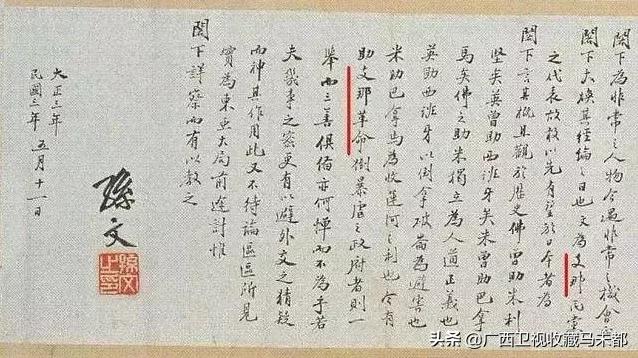 閣下為非常之人物今遇非常之機會
閣下大煥其經綸之日也文為支那民黨
之代表故敢以先有望於日本者為
閣下言其概且觀於歷史佛曾助米利
堅矣英曾助西班牙矣米曾助巴拿
馬矣佛之助米獨立為人道正義也
英助西班牙以倒拿破崙為避害也
米助巴拿馬為收運河之利也今有
助支那革命倒暴虐之政府者則一
舉而三善俱備亦何憚而不為乎若
夫幾事之密更有以避外交之猜疑
而神其作用此又不待論區區所見
實為東亜大局前途計惟
閣下詳察而有以教之
大正三年
民國三年 五月十一日
孫文
孫文之印
头条 @广西卫视收藏马未都